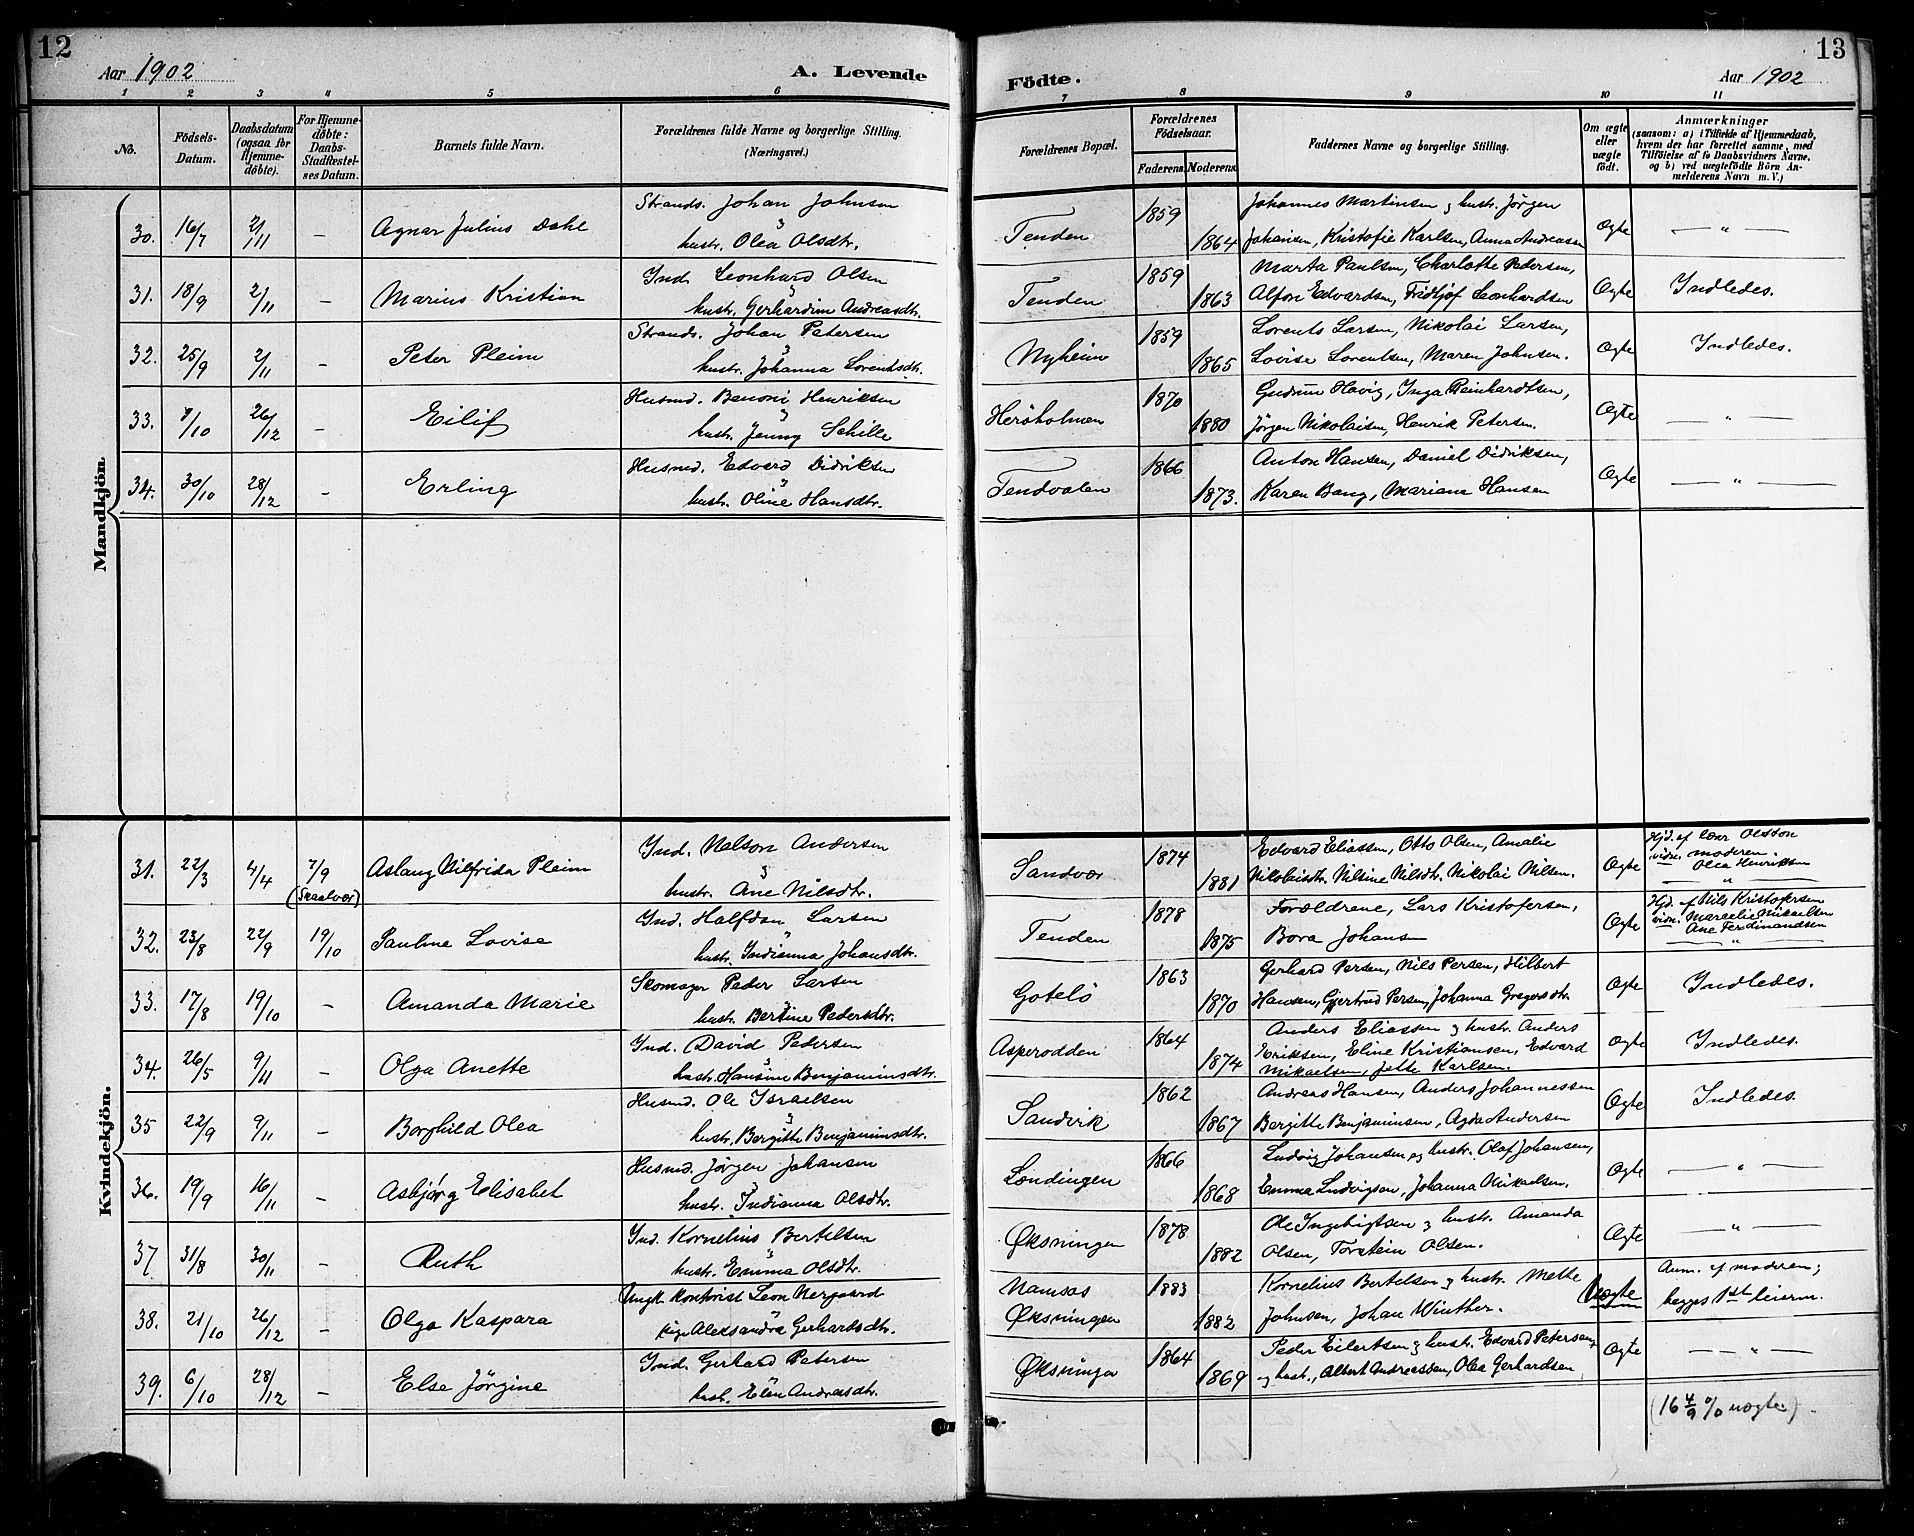 12
Aar 1902
A. Levende
1 2 3 4 5 6
No.
Födsels-Datum.
Daabsdatum (ogsaa for Hjemme-döbte).
For Hjemme-döbte: Daabs-Stadfæstel-ses Datum.
Barnets fulde Navn.
Forældrenes fulde Navne og borgerlige Stilling. (Næringsvei.)
Mandkjön
30. 16/7 2/11 – Agnar Julius Dahl Strands. Johan Johnsen
hustr. Olea Olsdtr.
31. 18/9 2/11 – Marius Kristian Ind. Leonhard Olsen
hustr. Gerhardine Andreasdtr.
32. 25/9 2/11 – Peter Pleim Strands. Johan Petersen
hustr. Johanna Lorentsdtr.
33. 7/10 26/12 – Eilif Husmd. Benoni Henriksen
hustr. Jenny Schille
34. 30/10 28/12 – Erling Husmd. Edvard Didriksen
hustr. Oline Hansdtr.
Kvindekjön.
31. 22/3 4/4 7/9 (Skaalvær) Aslaug Vilfrida Pleim Ind. Nelson Andersen
hustr. Ane Nilsdtr.
32. 23/8 22/9 19/10 Pauline Lovise Ind. Halfdan Larsen
hustr. Indianna Johansdtr.
33. 17/8 19/10 – Amanda Marie Skomager Peder Larsen
hustr. Bertine Pedersdtr.
34. 26/5 9/11 – Olga Anette Ind. David Pedersen
hustr. Hansine Benjaminsdtr.
35 22/9 9/11 – Borghild Olea Husmd. Ole Israelsen
hustr. Bergitte Benjaminsdtr.
36. 19/9 16/11 – Asbjørg Elisabet Husmd. Jørgen Johansen
hustr. Indianna Olsdtr.
37 31/8 30/11 – Ruth Ind. Kornelius Bertelsen
hustr. Emma Olsdtr.
38. 21/10 26/12 – Olga Kaspara Ungk. Kontorist Leon Nergaard
pige Aleksandra Gerhardsdtr.
39. 6/10 28/12 – Else Jørgine Ind. Gerhard Petersen
hust. Elen Andreasdtr.
13
Födte.
Aar 1902
7 8 9 10 11
Forældrenes Bopæl.
Forældrenes Födselsaar.
Faderens. Moderens.
Faddernes Navne og borgerlige Stilling.
Om ægte eller uægte födt.
Anmærkninger
(saasom: a) i Tilfælde af Hjemmedaab, hvem der har forrettet samme, med Tilföielse af to Daabsvidners Navne, og b) ved uægtefödte Börn An-melderens Navn m. V.)
Tenden 1859 1864 Johannes Martinsen & hustr. Jørgen
Johansen, Kristofie Karlsen, Anna Andreassen Ægte — " —
Tenden 1859 1863 Marta Paulsen, Charlotte Pedersen,
Alfon Edvardsen, Fridtjof Leonhardsen Ægte Indledes.
Nyheim 1859 1865 Lorents Larsen, Nikolai Larsen,
Lovise Lorentsen, Maren Johnsen. Ægte Indledes.
Herøholmen 1870 1880 Gudrun Havig, Inga Reinhardtsen,
Jörgen Nikolaisen, Henrik Petersen. Ægte — " —
Tendvalen 1866 1873. Anton Hansen, Daniel Didriksen,
Karen Bang, Mariane Hansen Ægte — " —
Sandvær 1874 1881 Edvard Eliassen, Otto Olsen, Amalie
Nikolaisdtr. Nilsine Nilsdtr. Nikolai Nilsen. Ægte Hjd. af Lær Olsson
vidn. moderen.
Olea Henriksen
Tenden 1878 1875 Forældrene, Lars Kristofersen,
Bora Johansen Ægte Hjd. af Nils Kristofersen
vidn. Marselie Mikaelsen
Ane Ferdinandsen
Gotelö 1863 1870 Gerhard Persen, Nils Persen, Hilbert
Hansen, Gjertrud Persen, Johanna Gregersdtr. Ægte Indledes.
Asperodden 1864 1874 Anders Eliassen & hustr. Anders
Eriksen, Eline Kristiansen, Edvard
Mikaelsen, Jette Karlsen. Ægte Indledes.
Sandvik 1862 1867 Andreas Hansen, Anders Johannessen
Bergitte Benjaminsen, Agda Andersen Ægte Indledes.
Lændingen 1866 1868 Ludvig Johansen og hustr. Olaf Johansen,
Emma Ludvigsen, Johanna Mikaelsen. Ægte — " —
Øksningen 1878 1882 Ole Ingebrigtsen & hustr. Amanda
Olsen, Torstein Olsen. Ægte — " —
Namsos 1883 Kornelius Bertelsen & hustr. Mette
Øksningen 1882 Johnsen, Johan Winther. Uægte Anm. af moderen;
begges 1ste leierm.
Øksninga 1864 1869 Peder Eilertsen & hustr. Edvard Petersen
og hust., Albert Andreassen, Olea Gerhardsen Ægte — " —
(16 4/9 % uægte)